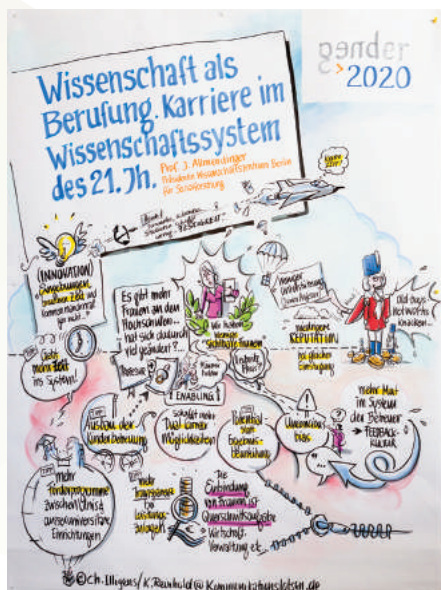 gender
2020
Wissenschaft als
Berufung. Karriere im
Wissenschaftssystem
des 21. Jh.
Prof. J. Allmendinger
Präsidentin Wissenschaftszentrum Berlin
für Sozialforschung
(INNOVATION)
brauchen Zeit und
kommen manchmal
gar nicht..."
Gebt
mehr Zeit
ins System!
Es gibt mehr
Frauen an den
Hochschulen...
hat sich dadurch
viel geändert?
Wir haben
weniger
Weniger
niedrigere
REPUTATION
bei gleicher
Old Guys
Networks
knacken...
Professur
ENABLING
TIPP
Ausbau der
Kinderbetreuung
schafft mehr
Dual Career
Möglichkeiten
Potential
statt
Ergebnis-
beurteilung
Unconscious
bias
mehr Mut
im System
der Betreuer
→ FEEDBACK-
KULTUR
TIPP
mehr
Förderprogramme
zwischen Unis &
außeruniversitäre
Einrichtungen
TIPP
mehr
Transparenz
bei
Leistungs-
zulagen
Die
Einbindung
von Frauen ist
Querschnittsaufgabe
• Wirtschaft,
Verwaltung etc.
©Ch. Illigens / K. Reinhold @ Kommunikationslotsen.de